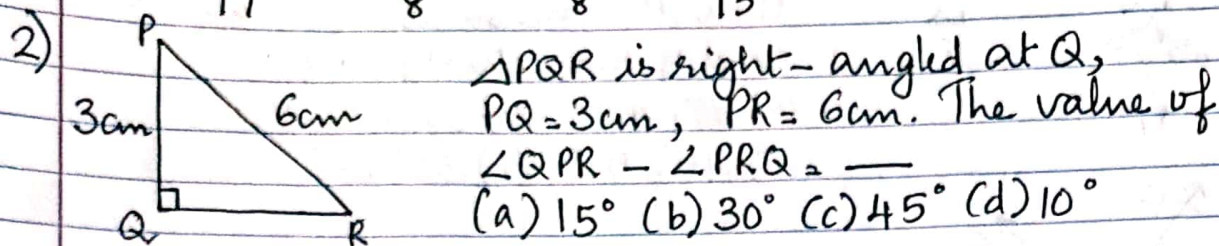 17 8 8 13
2)
P
3cm
6cm
Q
R
△PQR is right-angled at Q,
PQ=3cm, PR=6cm. The value of
∠QPR - ∠PRQ = __
(a) 15° (b) 30° (c) 45° (d) 10°